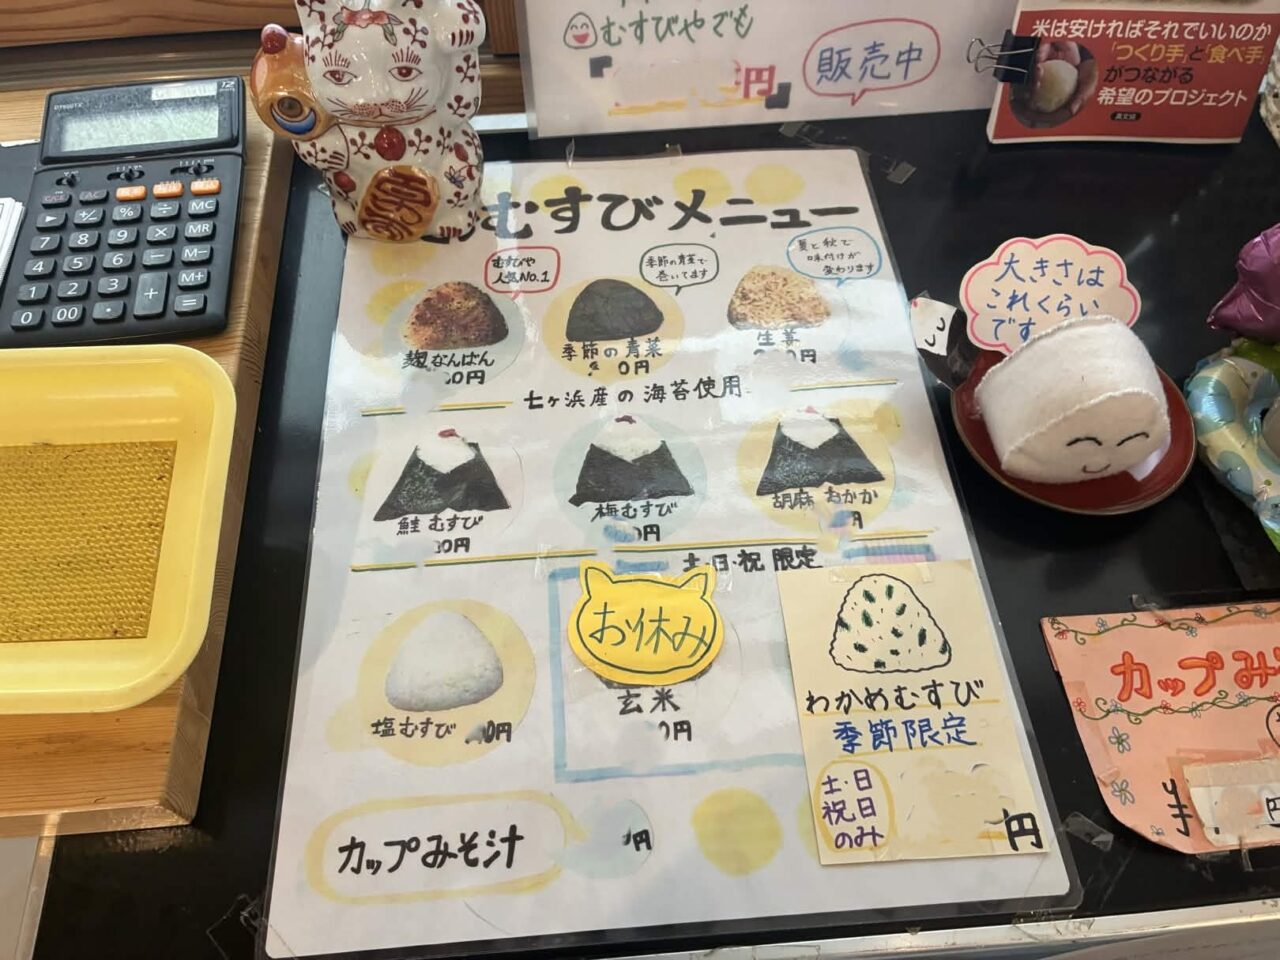 むすびやでも
円
販売中
米は安ければそれでいいのか
「つくり手」と「食べ手」
がつながる
希望のプロジェクト
むすびメニュー
むすびや
人気No.1
季節の青菜で
巻いてます
夏と秋で
味付けが
変わります
麹なんばん
0円
季節の青菜
0円
生姜
円
七ヶ浜産の海苔使用
鮭むすび
0円
梅むすび
0円
胡麻おかか
円
土・日・祝限定
塩むすび
0円
お休み
玄米
0円
わかめむすび
季節限定
土・日
祝日
のみ
円
カップみそ汁
円
大きさは
これくらい
です
カップみ
¥
円
12
CAL
AC
▶
+/-
%
÷
MC
7
8
9
×
MR
4
5
6
-
M-
1
2
3
+
M+
0
00
・
=